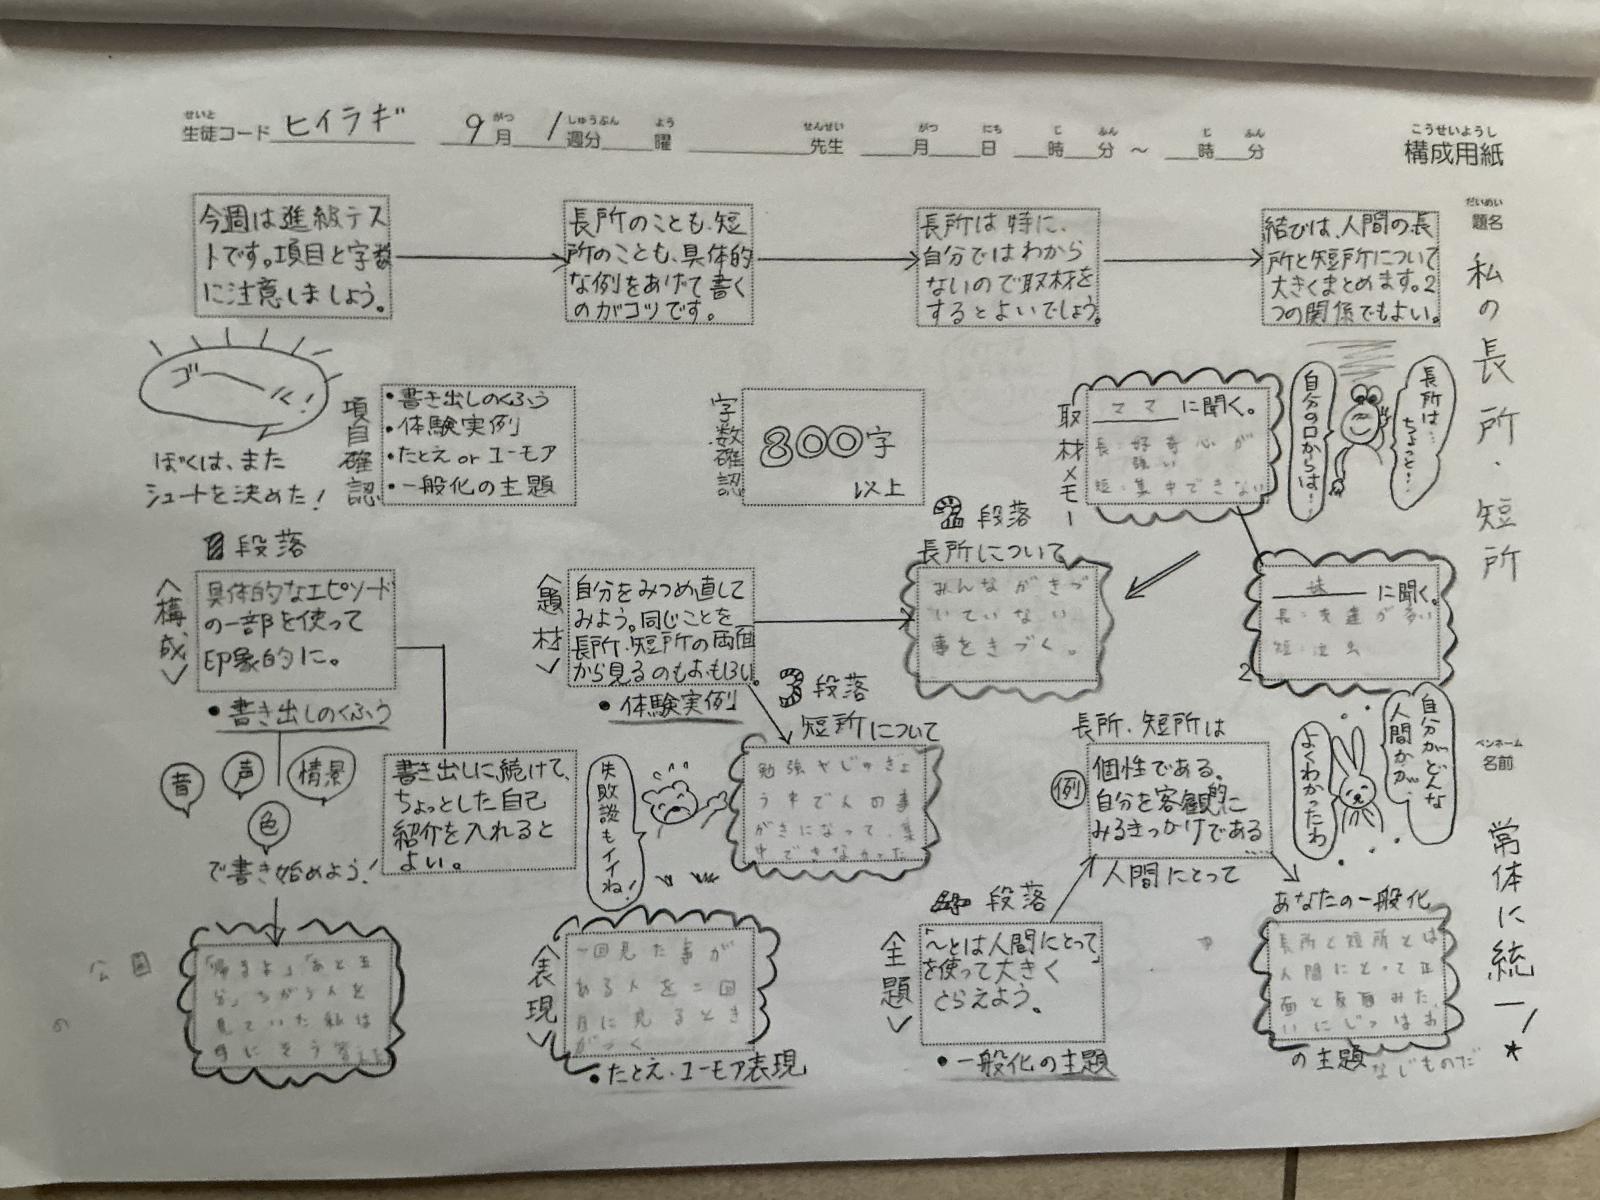 せいと
生徒コード ヒイラギ 9月 1週分 曜 先生 月 日 時 分 ～ 時 分
がつ しゅうぶん よう せんせい がつ にち じ ふん じ ふん
こうせいようし
構成用紙
だいめい
題名
私の長所・短所
ペンネーム
名前
常体に統一！★
今週は進級テス
トです。項目と字数
に注意しましょう。
長所のことも、短
所のことも、具体的
な例をあげて書く
のがコツです。
長所は特に、
自分ではわから
ないので取材を
するとよいでしょう。
結びは、人間の長
所と短所について
大きくまとめます。2
つの関係でもよい。
ゴール！
ぼくは、また
シュートを決めた！
項目確認
・書き出しのくふう
・体験実例
・たとえ or ユーモア
・一般化の主題
字数確認
800字
以上
取材メモー
ママに聞く。
長・好奇心が
強い
短・集中できない
自分の口からは…
長所は…
ちょっと…
妹に聞く。
長・友達が多い
短・
2
1段落
＜構成＞
具体的なエピソード
の一部を使って
印象的に。
・書き出しのくふう
音
声
情景
色
で書き始めよう！
書き出しに続けて、
ちょっとした自己
紹介を入れると
よい。
＜題材＞
自分をみつめ直して
みよう。同じことを
長所・短所の両面
から見るのもおもしろい。
・体験実例
2段落
長所について
みんながきづ
いていない
事をきづく。
3段落
短所について
勉強やじゅぎょ
う中で人の事
が気になって、集
中できなかった
失敗談もイイね！
長所・短所は
例
個性である。
自分を客観的に
みるきっかけである
……
人間にとって
自分がどんな
人間かが、
よくわかったわ
公園
「帰るよ」「あと五
分」ちがう人を
見ていた私は
＜表現＞
一回見た事が
ある人を二回
目に見るとき
がつく
・たとえ・ユーモア表現
4段落
＜主題＞
「～とは人間にとって」
を使って大きく
とらえよう。
・一般化の主題
あなたの一般化
長所と短所とは
人間にとって正
面と反面みた
いにじつはお
なじものだ
の主題